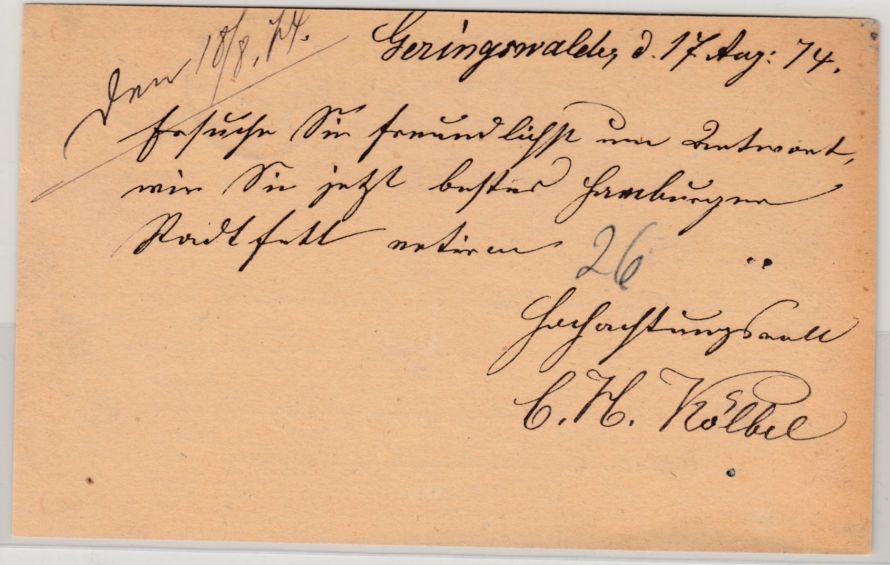 Geringswalde, d. 17 Aug: 74.
den 18/8. 74.
Ersuche Sie freundlichst um Antwort,
wie Sie jetzt bestes Hamburger
Stadtfett notiren
26
Hochachtungsvoll
C. H. Kölbel